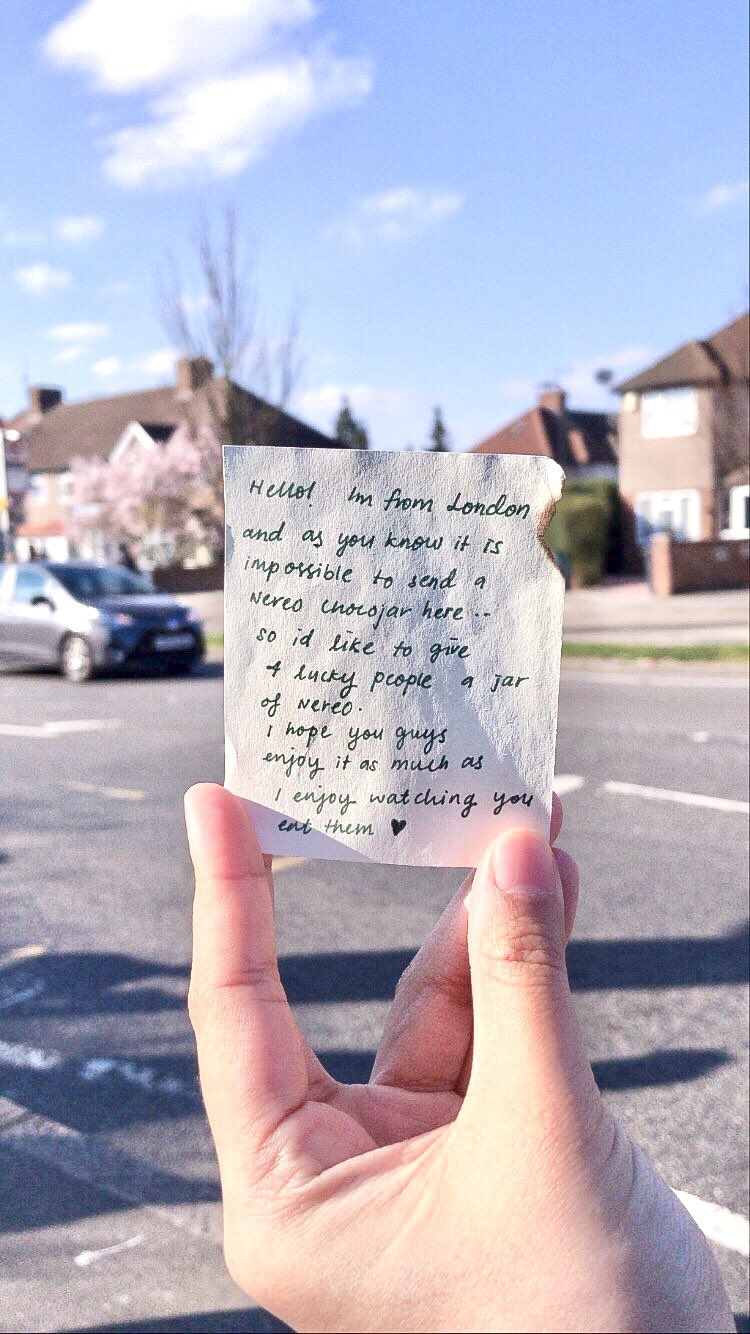 Hello! Im from London
and as you know it is
impossible to send a
Nereo Chocojar here..
so id like to give
4 lucky people a jar
of Nereo.
I hope you guys
enjoy it as much as
I enjoy watching you
eat them ♥